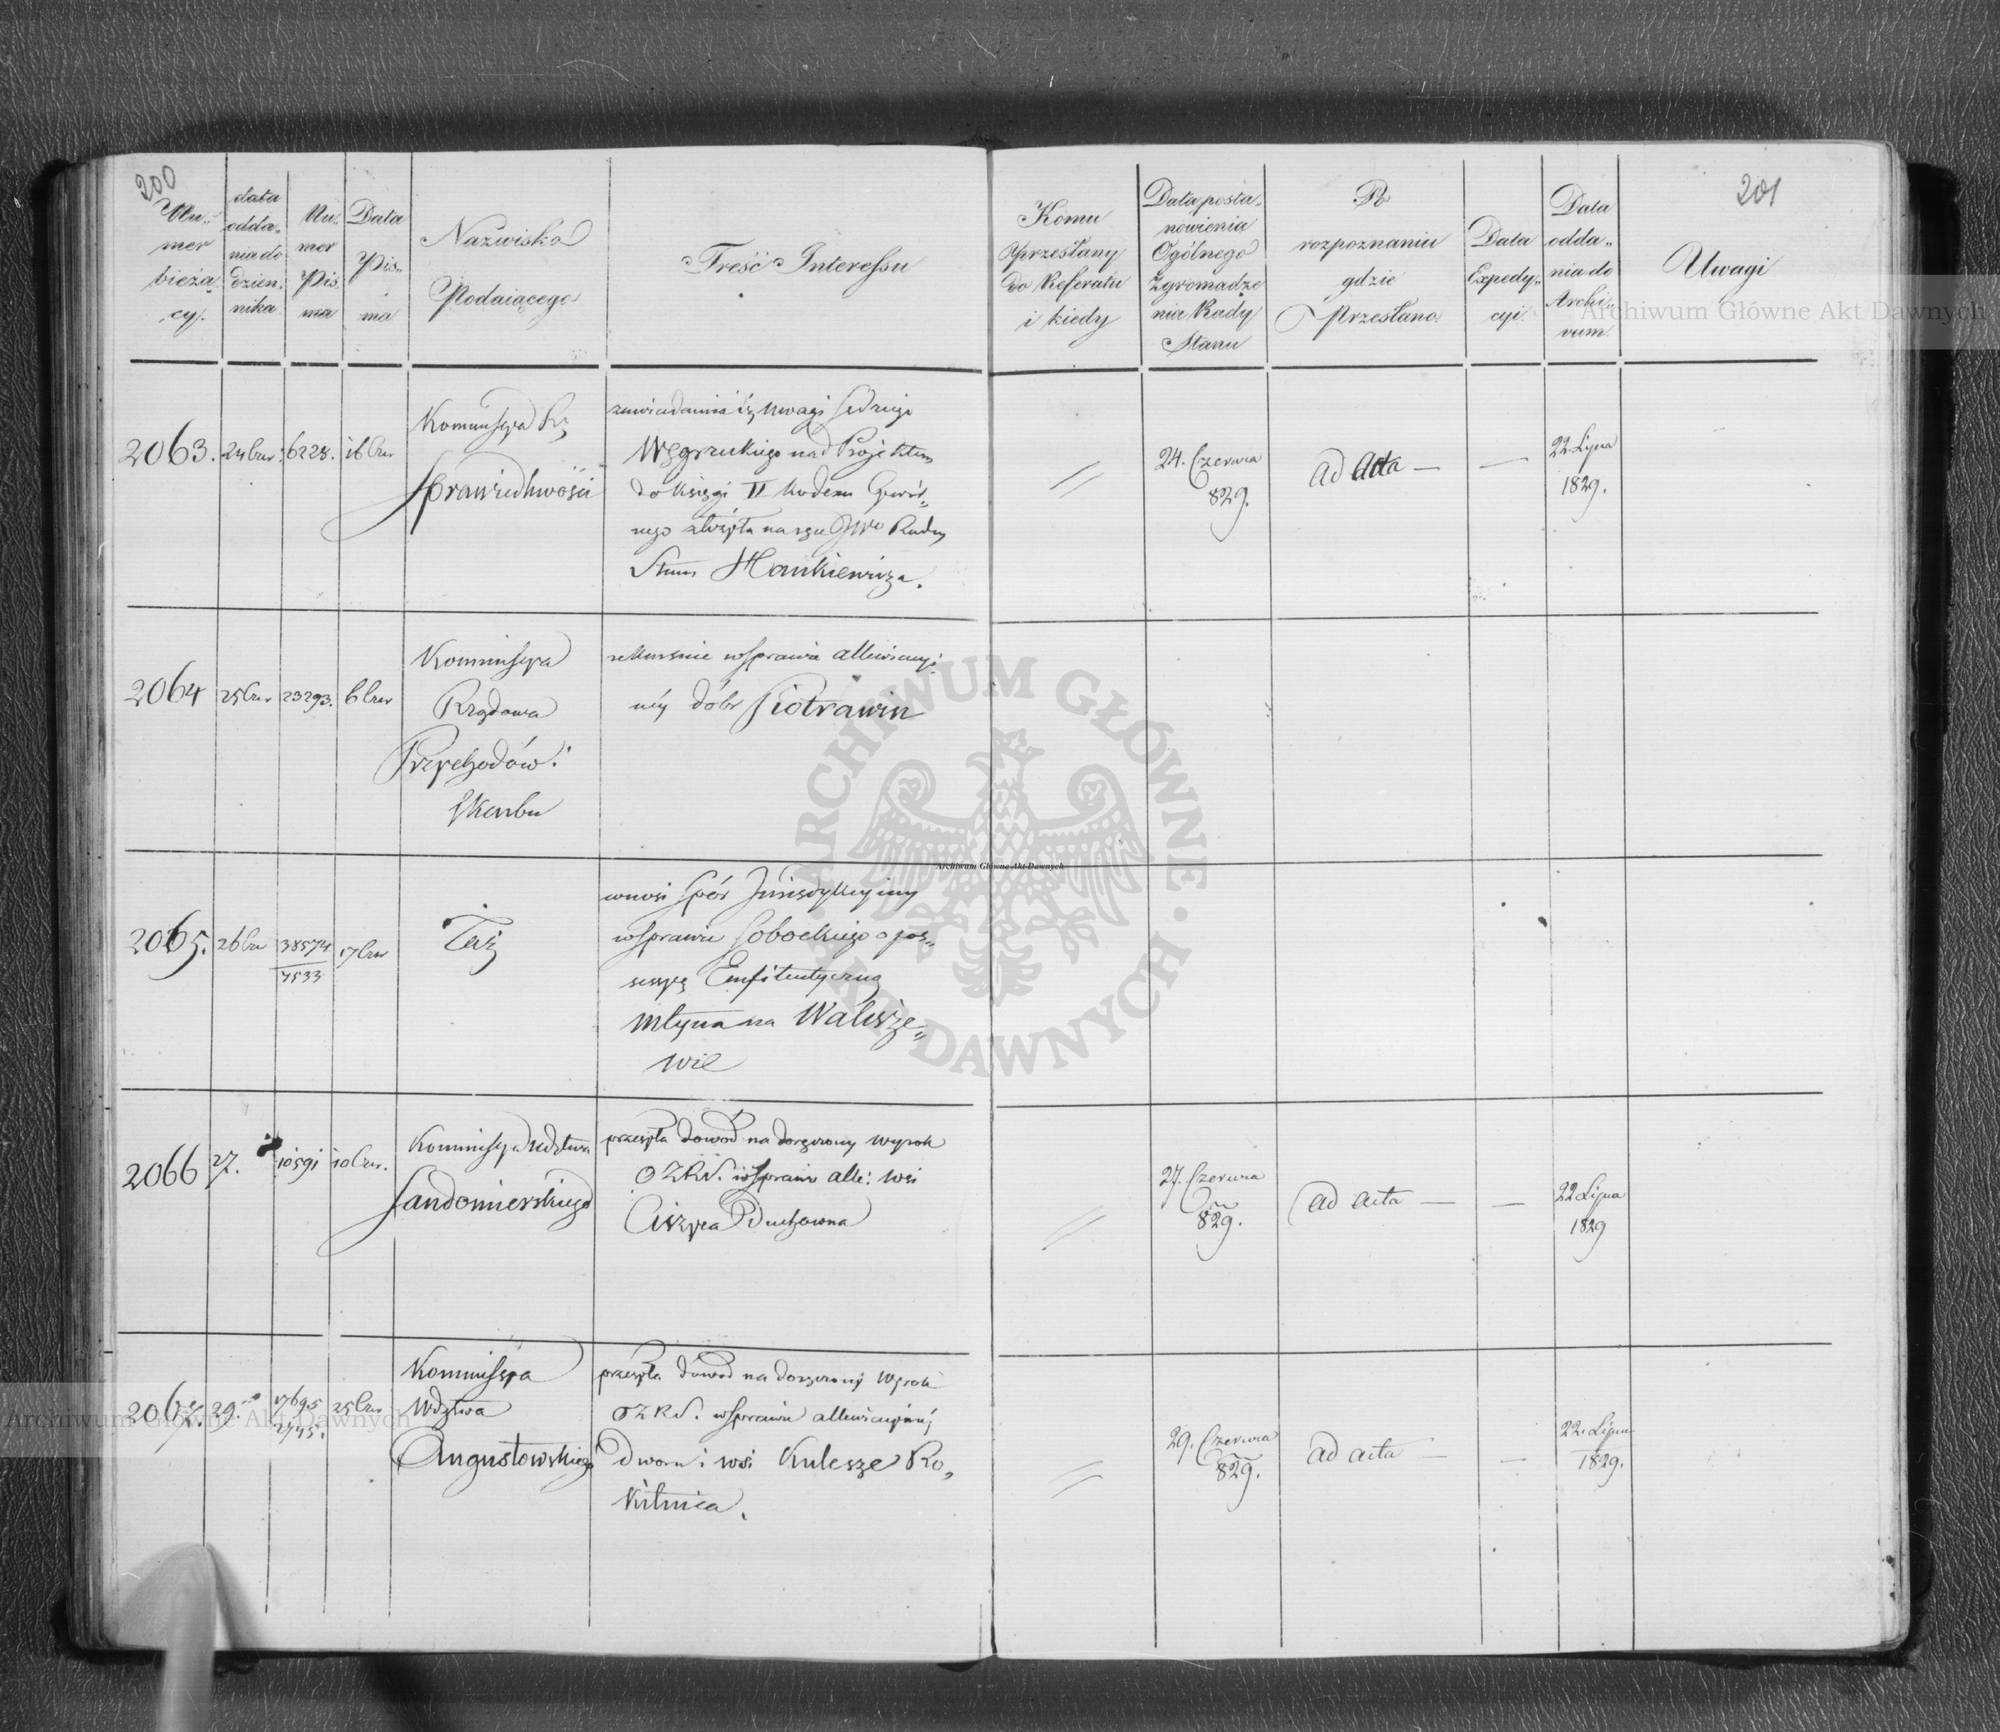 200
Nu-
mer
bieżą
cy.
data
odda-
nia do
dzien-
nika
Nu-
mer
Pis
ma
Data
Pis-
ma
Nazwisko
Podaiącego
Treść Interessu
Komu
przesłany
do Referatu
i kiedy
Data posta-
nowienia
Ogólnego
Zgromadze
nia Rady
Stanu
Po
rozpoznaniu
gdzie
Przesłano
Data
Expedy-
cyi
Data
odda-
nia do
Archi-
vum
Uwagi
201
2063. 24 Czer: 6228. 16 Czer
Kommissya Rz
Sprawiedliwości
zawiadamia iż uwagi Sędziego
Węgrzeckiego nad Projektem
do księgi II Kodexu
Stanu Hankiewicza.
24. Czerwca
829.
ad acta —
—
22. Lipca
1829.
2064 25 Czer 23293. 6 Czer
Kommissya
Rządowa
Przychodów:
Skarbu
w sprawie allewiacyi-
néy dóbr Piotrawin
2065. 26 Czer 38574
7533
17 Czer
Taż
wnosi spór Jurisdykcyiny
w sprawie Sobockiego o pos-
sessyę Emfiteutyczną
młyna na Walisze-
wie
2066 27. 10591 10 Czer.
Kommissya Wdztwa
Sandomierskiego
przesyła dowód na doręczony wyrok
OZRS. w sprawie alle: wsi
Ciszyca Duchowna
27. Czerwca
829.
ad acta —
—
22 Lipca
1829
2067. 29. 17695
2745.
25 Czer
Kommissya
Wdztwa
Augustowskiego
przesyła dowód na doręczony wyrok
OZRS. w sprawie allewiacyinéj
Dworu i wsi Kulesze Ro-
kitnica.
29. Czerwca
829.
ad acta —
—
22. Lipca
1829.
Archiwum Główne Akt Dawnych
Archiwum Główne Akt Dawnych
Archiwum Główne Akt Dawnych
ARCHIWUM GŁÓWNE · AKT DAWNYCH ·